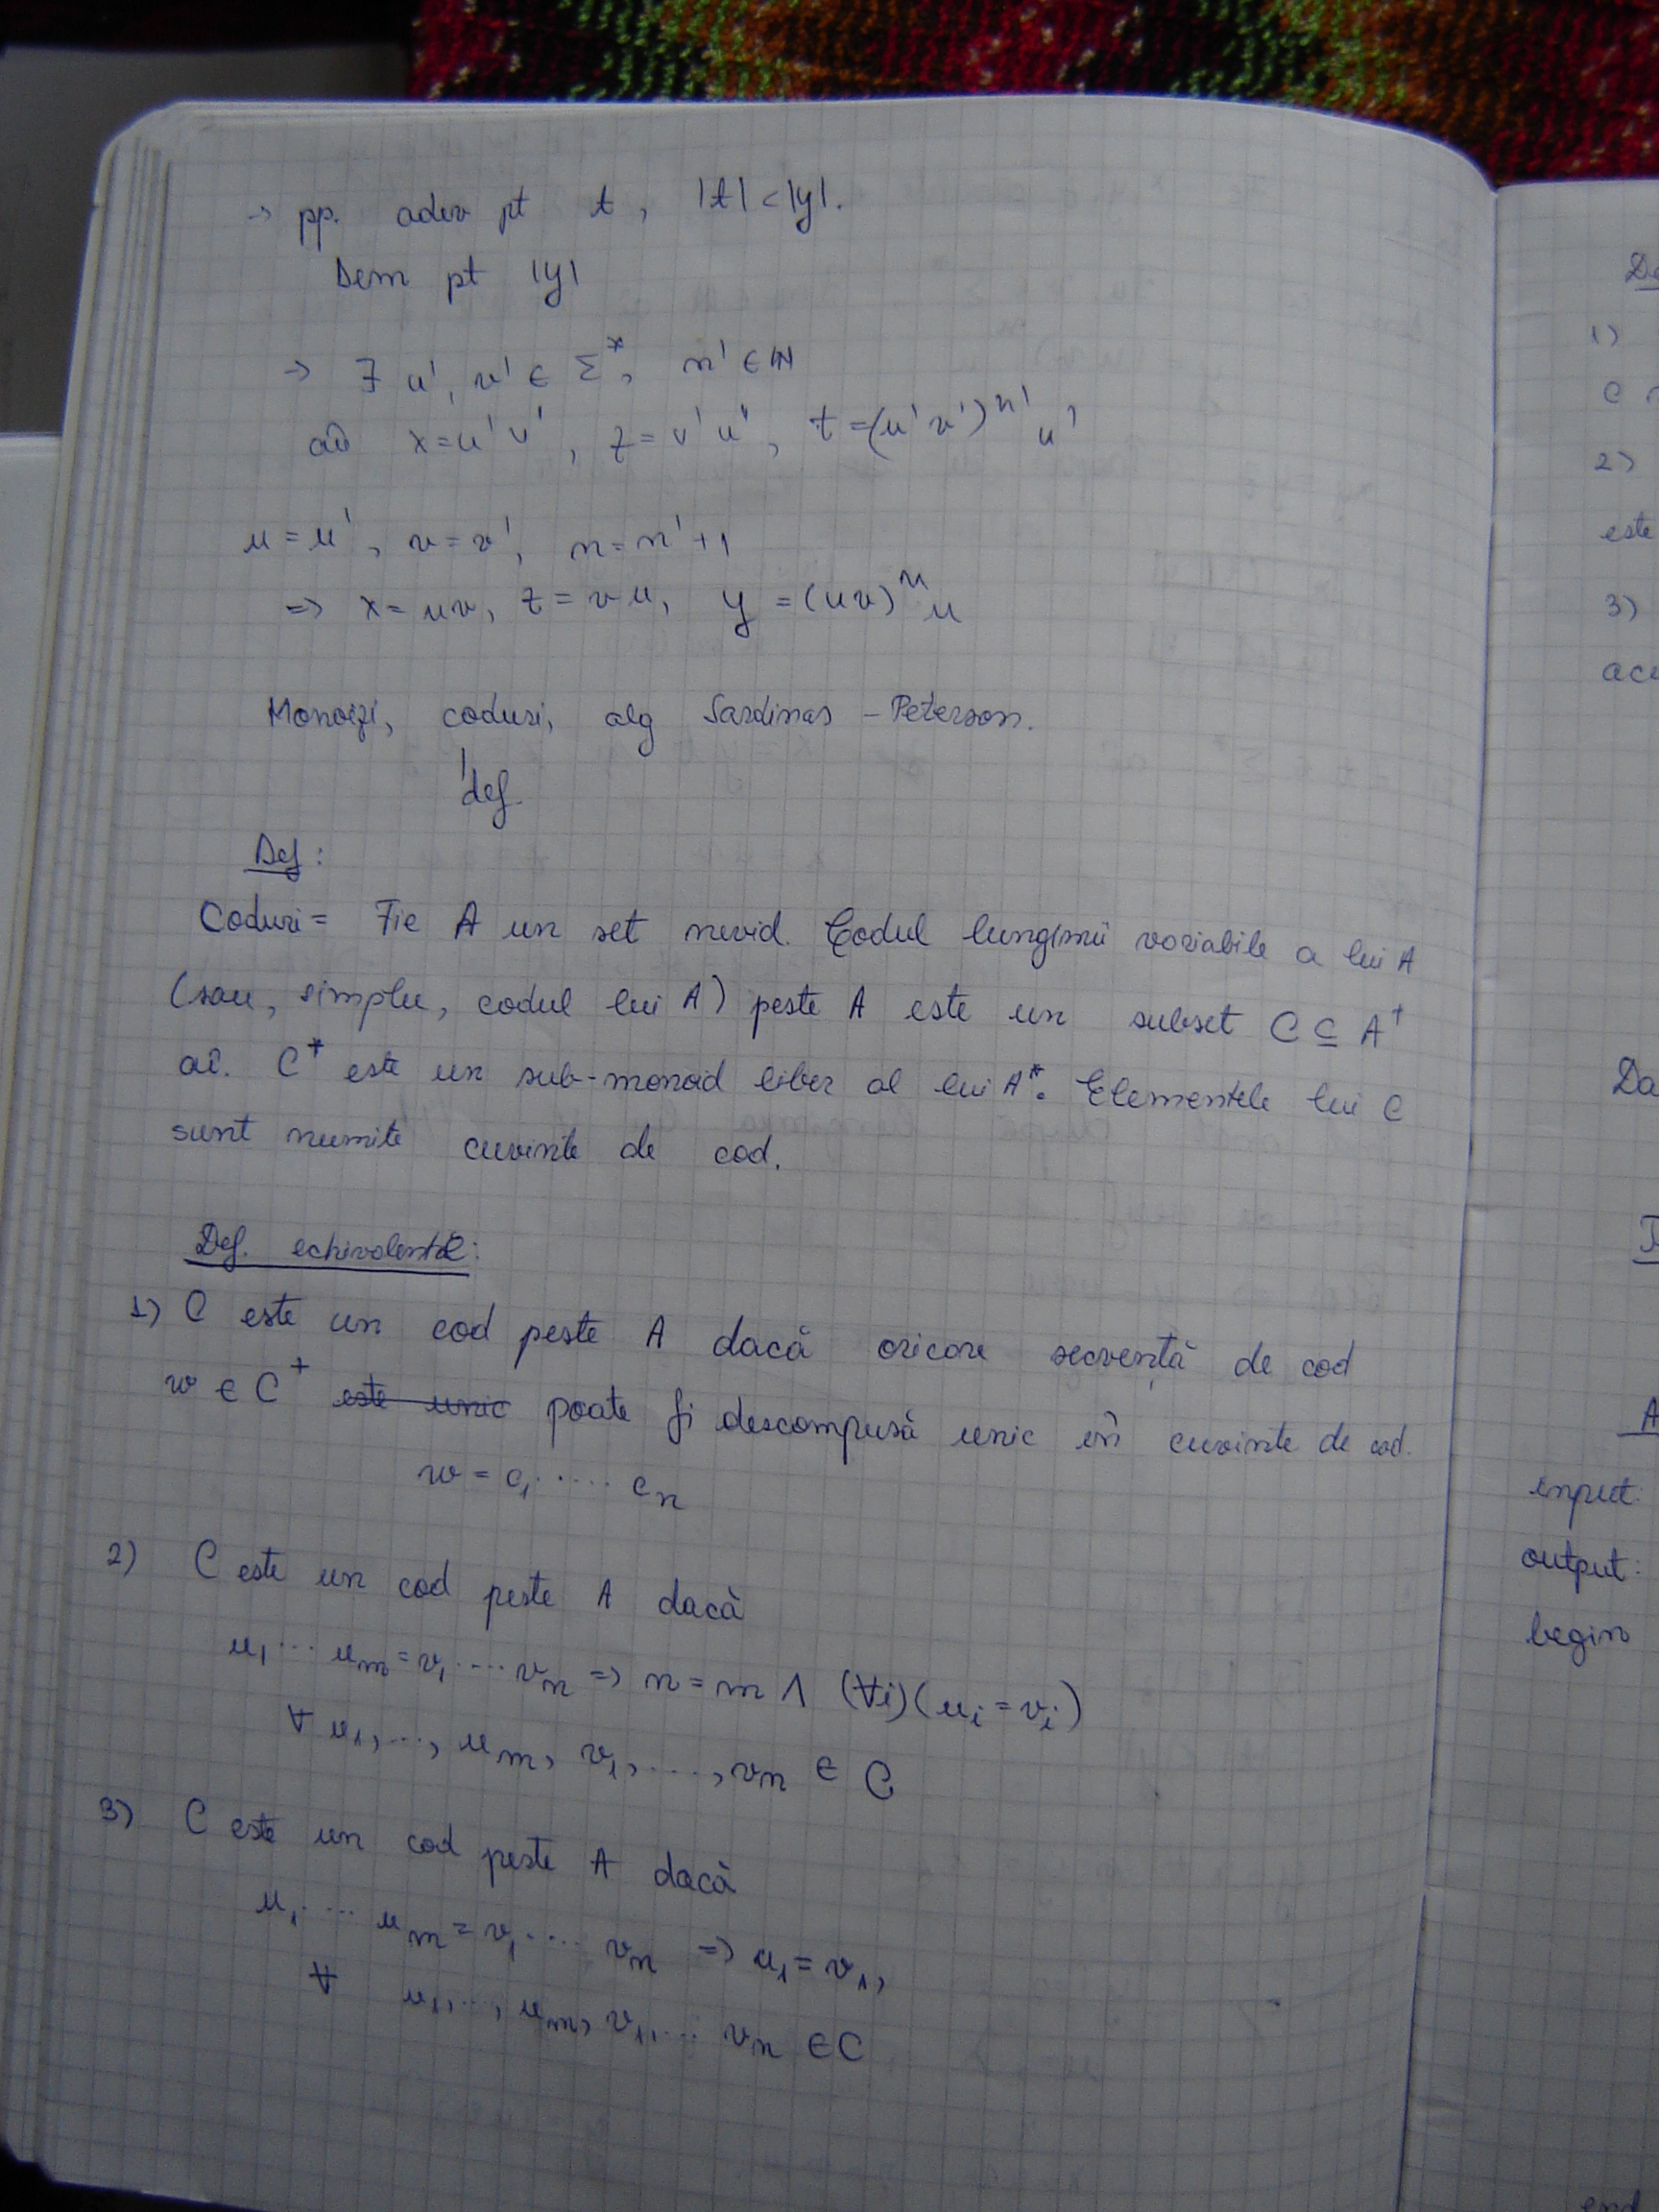 → pp. adev pt t, |t| < |y|.
Dem pt |y|
→ ∃ u', v' ∈ Σ*, n' ∈ ℕ
aî x = u'v', z = v'u', t = (u'v')^n' u'
u = u', v = v', n = n'+1
=> x = uv, z = vu, y = (uv)^n u
Monoizi, coduri, alg Sardinas - Peterson.
def.
Def:
Coduri = Fie A un set nevid. Codul lungimii variabile a lui A
(sau, simplu, codul lui A) peste A este un subset C ⊆ A⁺
aî. C⁺ este un sub-monoid liber al lui A*. Elementele lui C
sunt numite cuvinte de cod.
Def. echivalente:
1) C este un cod peste A dacă oricare secvență de cod
w ∈ C⁺ este unic poate fi descompusă unic în cuvinte de cod.
w = c₁ ..... cₙ
2) C este un cod peste A dacă
u₁ ... uₘ = v₁ .... vₙ => n = m ∧ (∀i)(uᵢ = vᵢ)
∀ u₁, ..., uₘ, v₁, ...., vₙ ∈ C
3) C este un cod peste A dacă
u₁ ... uₘ = v₁ .... vₙ => u₁ = v₁,
∀ u₁, ..., uₘ, v₁, ... vₙ ∈ C
1)
C
2)
este
3)
Da
input:
output:
begin
end